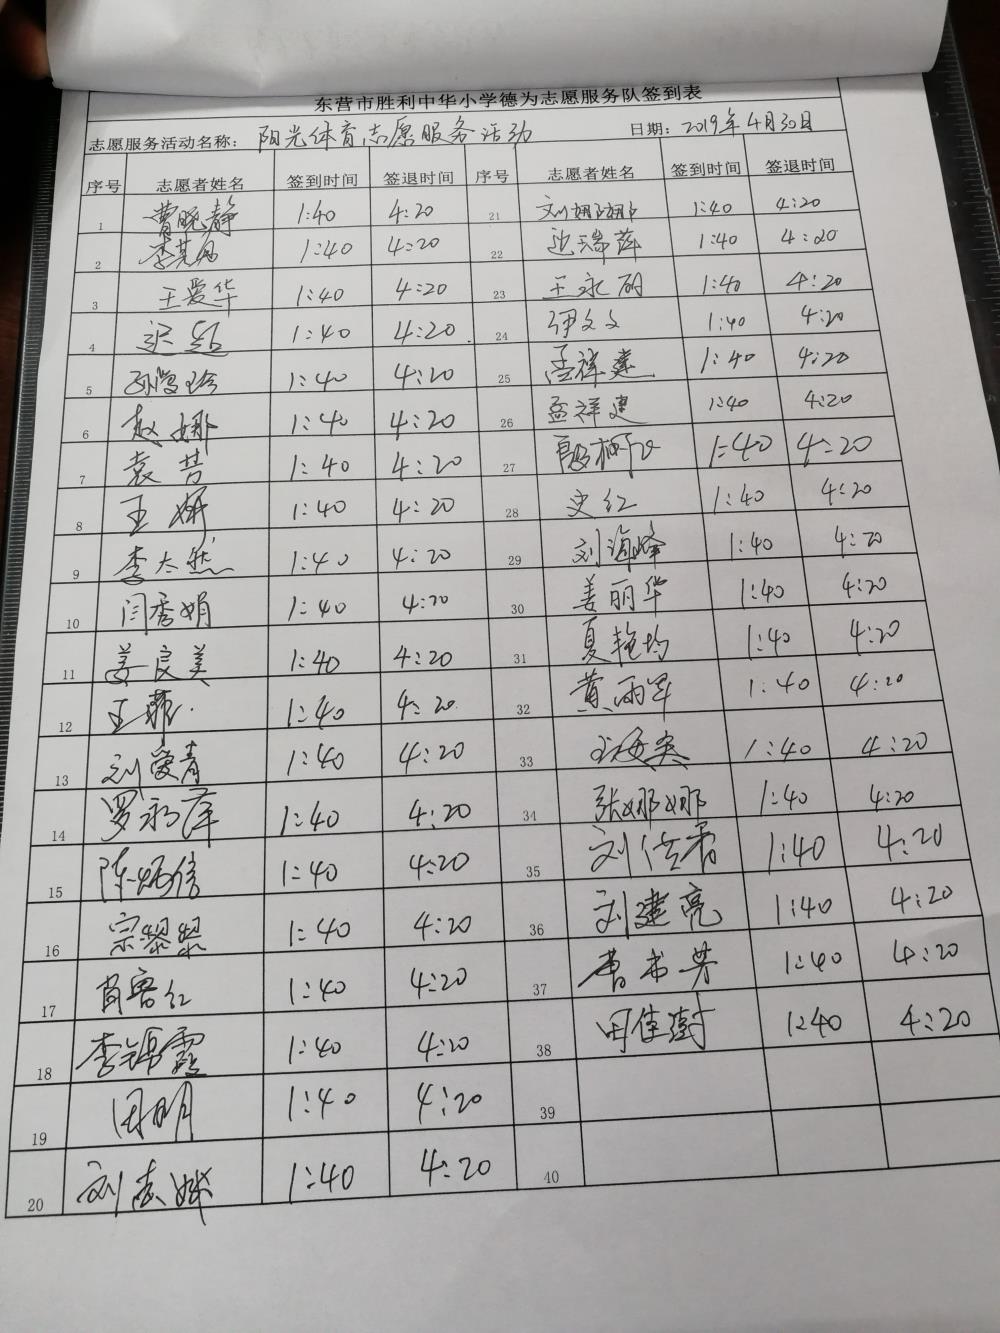 东营市胜利中华小学德为志愿服务队签到表
志愿服务活动名称：阳光体育志愿服务活动 日期：2019年4月30日
序号 志愿者姓名 签到时间 签退时间 序号 志愿者姓名 签到时间 签退时间
1 曹晓静 1:40 4:20 21 刘娜娜 1:40 4:20
2 1:40 4:20 22 迟瑞萍 1:40 4:20
3 王爱华 1:40 4:20 23 王永刚 1:40 4:20
4 迟超 1:40 4:20 24 伊文文 1:40 4:20
5 1:40 4:20 25 孟祥建 1:40 4:20
6 赵娜 1:40 4:20 26 孟祥建 1:40 4:20
7 袁芳 1:40 4:20 27 1:40 4:20
8 王妍 1:40 4:20 28 史红 1:40 4:20
9 李太然 1:40 4:20 29 刘海峰 1:40 4:20
10 闫秀娟 1:40 4:20 30 姜丽华 1:40 4:20
11 姜良美 1:40 4:20 31 夏艳均 1:40 4:20
12 王菲 1:40 4:20 32 黄丽军 1:40 4:20
13 刘爱青 1:40 4:20 33 王海英 1:40 4:20
14 罗永萍 1:40 4:20 34 张娜娜 1:40 4:20
15 陈炳信 1:40 4:20 35 1:40 4:20
16 宗黎黎 1:40 4:20 36 刘建亮 1:40 4:20
17 肖鲁红 1:40 4:20 37 曹书芳 1:40 4:20
18 李锦霞 1:40 4:20 38 田佳澍 1:40 4:20
19 周明 1:40 4:20 39
20 1:40 4:20 40